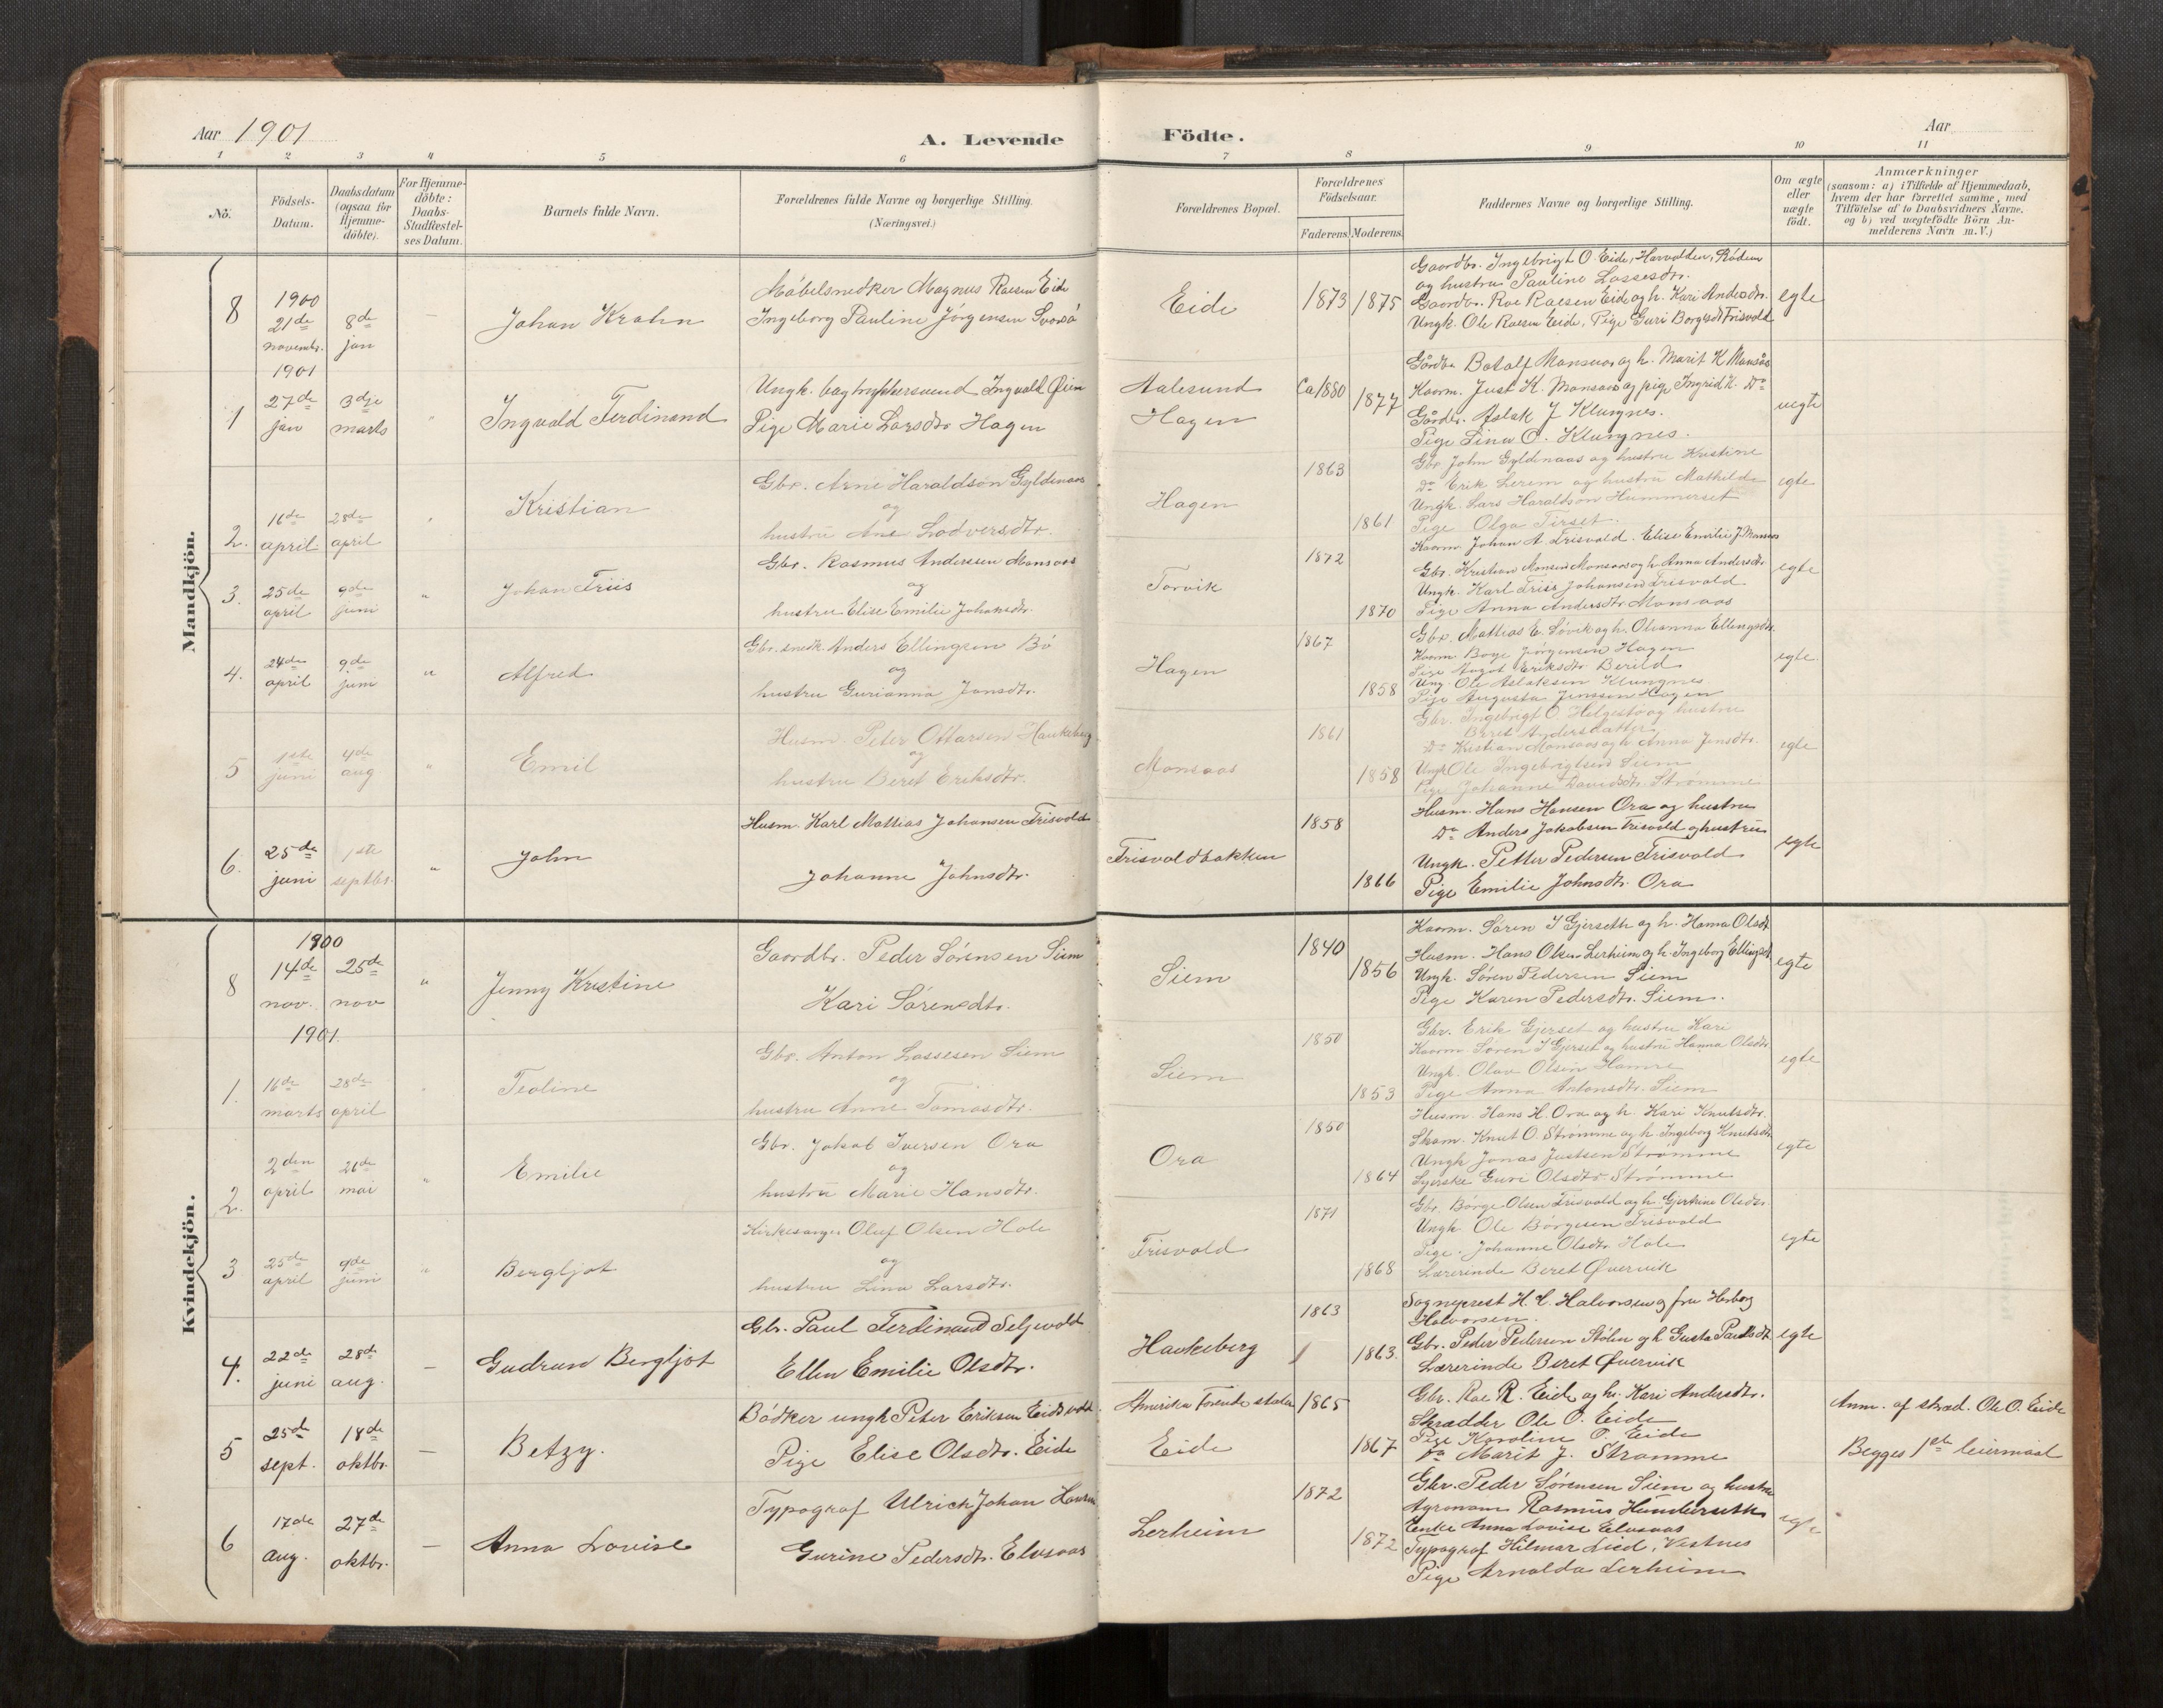 Aar 1901
A. Levende Födte.
Aar
1 2 3 4 5 6 7 8 9 10 11
No.
Födsels-Datum.
Daabsdatum (ogsaa for Hjemme-döbte).
For Hjemme-döbte: Daabs-Stadfestel-ses Datum.
Barnets fulde Navn.
Forældrenes fulde Navne og borgerlige Stilling. (Næringsvei.)
Forældrenes Bopæl.
Forældrenes Födselsaar.
Faderens. Moderens.
Faddernes Navne og borgerlige Stilling.
Om ægte eller uægte födt.
Anmærkninger
(saasom: a) i Tilfælde af Hjemmedaab,
hvem der har forrettet samme, med
Tilföielse af to Daabsvidners Navne,
og b) ved uægtefödte Börn An-
melderens Navn m. V.)
Mandkjön.
8
1900
21de novembr.
8de jan
Johan Krohn
Möbelsnedker Magnus Raesen Eide
Ingeborg Pauline Jörgensen
Eide
1873 1875
Gaardbr. Ingebrigt O. Eide,
og hustru Pauline Lassesdtr.
Gaardbr. Roe Raesen Eide og h. Kari Andersdtr.
Ungk. Ole Raesen Eide, Pige Guri Borgesdt Frisvold
egte
1901
1
27de jan
3dje marts
"
Ingvald Ferdinand
Ungk. Ingvald Øien
Pige Marie Larsdtr Hagen
Aalesund
Hagen
Ca 1880 1877
Gårdbr Botolf Monsaas og h. Marit K Monsås
Kaarm. Just K. Monsaas og pige Ingrid K. Do
Gårdbr. Aslak J Klungnes.
Pige Lina O. Klungnes.
uegte
2.
16de april
28de april
"
Kristian
Gbr. Arne Haraldsøn Gyldenaas
og
hustru Ane Lodversdtr.
Hagen
1863
1861
Gbr John Gyldenaas og hustru Kristine
Do Erik Lerem og hustru Mathilde
Ungk. Lars Haraldsøn Hammerset
Pige Olga Tirset.
egte
3.
25de april
9de juni
"
Johan Friis
Gbr. Rasmus Anderssen Monsaas
og
hustru Elise Emilie Johansdtr.
Torvik
1872
1870
Kaarm. Johan A. Frisvold. Elise Emilie J Monsaas
Gbr. Kristian Monsen Monsaas og h. Anna Andersdtr
Ungk. Karl Friis Johansen Frisvold
Pige Anna Andersdtr. Monsaas
egte
4.
24de april
9de juni
"
Alfred
Gbr. snedk. Anders Ellingsen Bö
og
hustru Gurianna Jonsdtr.
Hagen
1867
1858
Gbr. Mattias E. Søvik og h. Olianna Ellingsdtr.
Kaarm Borge Jørgensen Hagen
Pige Magot Eriksdtr Berild
Ung. Ole Aslaksen Klungnes
Pige Augusta Jenssen Hagen
egte
5
1ste juni
4de aug
"
Emil
Husm. Peter Ottarsen Haukeberg
og
hustru Beret Eriksdtr.
Monsaas
1861
1858
Gbr. Ingebrigt O. Helgestø og hustru
Beret Andersdatter
Do Kristian Monsaas og h Anna Jensdtr.
Ungk Ole Ingebrigtsen Siem
Pige Johanne Davidsdtr. Strømme
egte
6.
25de juni
1ste septbr.
"
John
Husm. Karl Mattias Johansen Frisvold
Johanne Johnsdtr.
Frisvoldbakken
1858
1866
Husm. Hans Hansen Ora og hustru
Do Anders Jakobsen Frisvold og hustru
Ungk. Petter Pedersen Frisvold
Pige Emilie Johnsdtr. Ora
egte
Kvindekjön.
8
1900
14de nov.
25de nov
"
Jenny Kristine
Gaardbr. Peder Sörensen Siem
Kari Sörensdtr.
Siem
1840
1856
Kaarm. Søren I Gjerseth og h. Hanna Olsdt
Husm. Hans Olsen Lerheim og h. Ingeborg Ellingsdt
Ungk. Søren Pedersen Siem
Pige Karen Pedersdtr. Siem.
egte
1901.
1.
16de marts
28de april
"
Teoline
Gbr. Anton Lassesen Siem
og
hustru Anne Tomasdtr.
Siem
1850
1853
Gbr. Erik Gjerset og hustru Kari
Kaarm. Søren I Gjerset og hustru Hanna Olsdtr
Ungk. Olav Olsen Hamre
Pige Anna Antonsdtr. Siem
egte
2.
2den april
26de mai
"
Emilie
Gbr. Jakob Iversen Ora
og
hustru Marie Hansdtr.
Ora
1850
1864
Husm. Hans H. Ora og h. Kari Knutsdtr.
Skom. Knut O. Strømme og h. Ingeborg Knutsdtr.
Ungk Jonas Justsen Strømme
Syerske Guri Olsdtr Strømme
egte
3
25de april
9de juni
"
Bergljot
Kirkesanger Oluf Olsen Hole
og
hustru Lina Larsdtr.
Frisvold
1871
1868
Gbr. Börge Olsen Frisvold og h. Gjertrine Olsdtr.
Ungk Ole Börgesen Frisvold
Pige. Johanne Olsdtr. Hole
Lærerinde Beret Øvervik
egte
4.
22de juni
28de aug.
—
Gudrun Bergljot
Gbr. Paul Ferdinand Seljevold
Ellen Emilie Olsdtr.
Haukeberg
1863
1863.
Sogneprest H. C. Halvorsen og fru Herborg
Halvorsen.
Gbr. Peder Pedersen Stölen og h Gusta Paulsdt
Lærerinde Beret Øvervik
egte
5
25de sept.
18de oktbr.
—
Betzy.
Bödker ungk Peter Eriksen Eidsvold
Pige Elise Olsdtr. Eide
Amerika Forende stater
Eide
1865
1867
Gbr. Roe R. Eide og h. Kari Andersdtr.
Skrædder Ole O. Eide
Pige Karoline O. Eide
Do Marit J. Strømme
Anm. af skræd. Ole O. Eide
Begges 1ste leiermaal
6
17de aug.
27de oktbr.
—
Anna Lovise
Typograf Ulrich Johan Hansen
Gurine Pedersdtr. Elvsaas
Lerheim
1872
1872
Gbr. Peder Sørensen Siem og hustru
Agronom Rasmus Hunderseth
Enke Anna Lovise Elvsaas
Typograf Hilmar Lied, Vestnes
Pige Arnolda Lerheim
egte